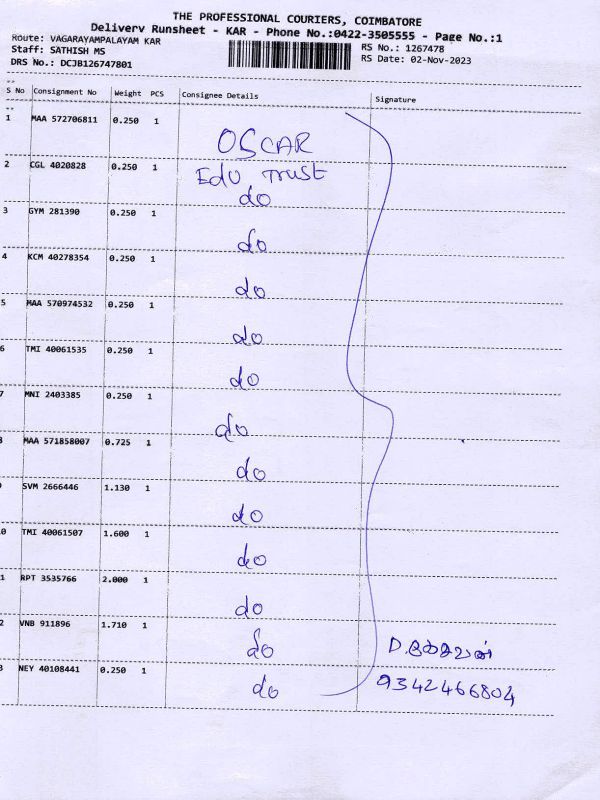 THE PROFESSIONAL COURIERS, COIMBATORE
Delivery Runsheet - KAR - Phone No.:0422-3505555 - Page No.:1
Route: VAGARAYAMPALAYAM KAR
RS No.: 1267478
Staff: SATHISH MS
RS Date: 02-Nov-2023
DRS No.: DCJB126747801
S No Consignment No Weight PCS Consignee Details Signature
1 MAA 572706811 0.250 1
OSCAR
2 CGL 4020828 0.250 1 Edu Trust
do
3 GYM 281390 0.250 1
do
4 KCM 40278354 0.250 1
do
5 MAA 570974532 0.250 1
do
6 TMI 40061535 0.250 1
do
7 MNI 2403385 0.250 1
do
8 MAA 571858007 0.725 1
do
SVM 2666446 1.130 1
do
0 TMI 40061507 1.600 1
do
1 RPT 3535766 2.000 1
do
2 VNB 911896 1.710 1
do D.
3 NEY 40108441 0.250 1 9342466804
do